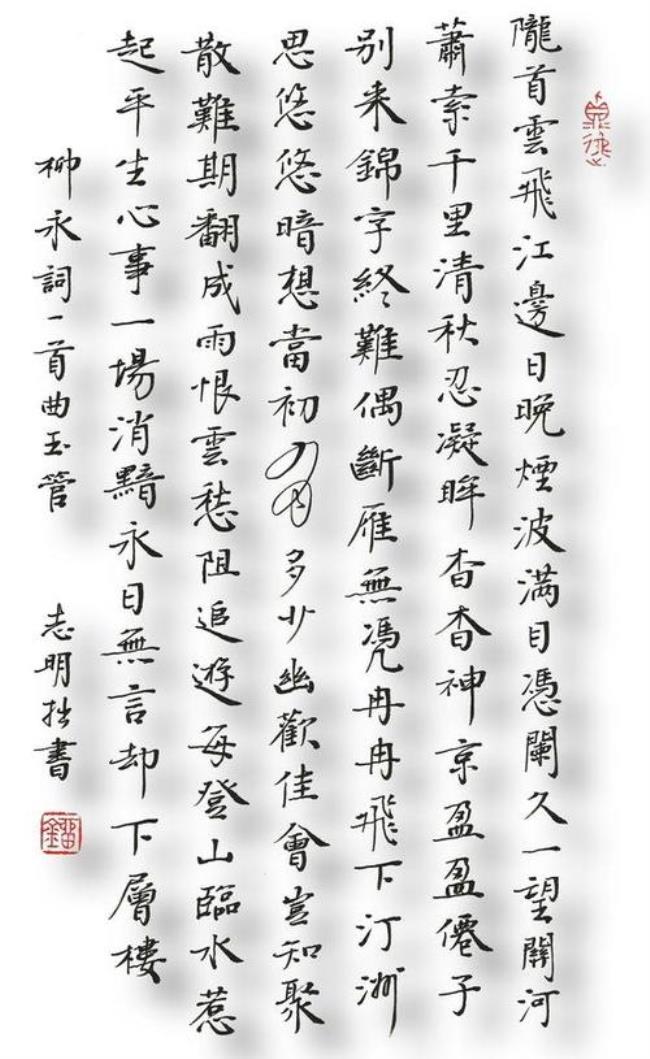 隴首雲飛江邊日晚煙波滿目憑闌久一望關河
蕭索千里清秋忍凝眸杳杳神京盈盈僊子
別来錦字終難偶斷雁無憑冉冉飛下汀洲
思悠悠暗想當初有多少幽歡佳會豈知聚
散難期翻成雨恨雲愁阻追遊每登山臨水惹
起平生心事一場消黯永日無言却下層樓
柳永詞一首曲玉管
志明拙書